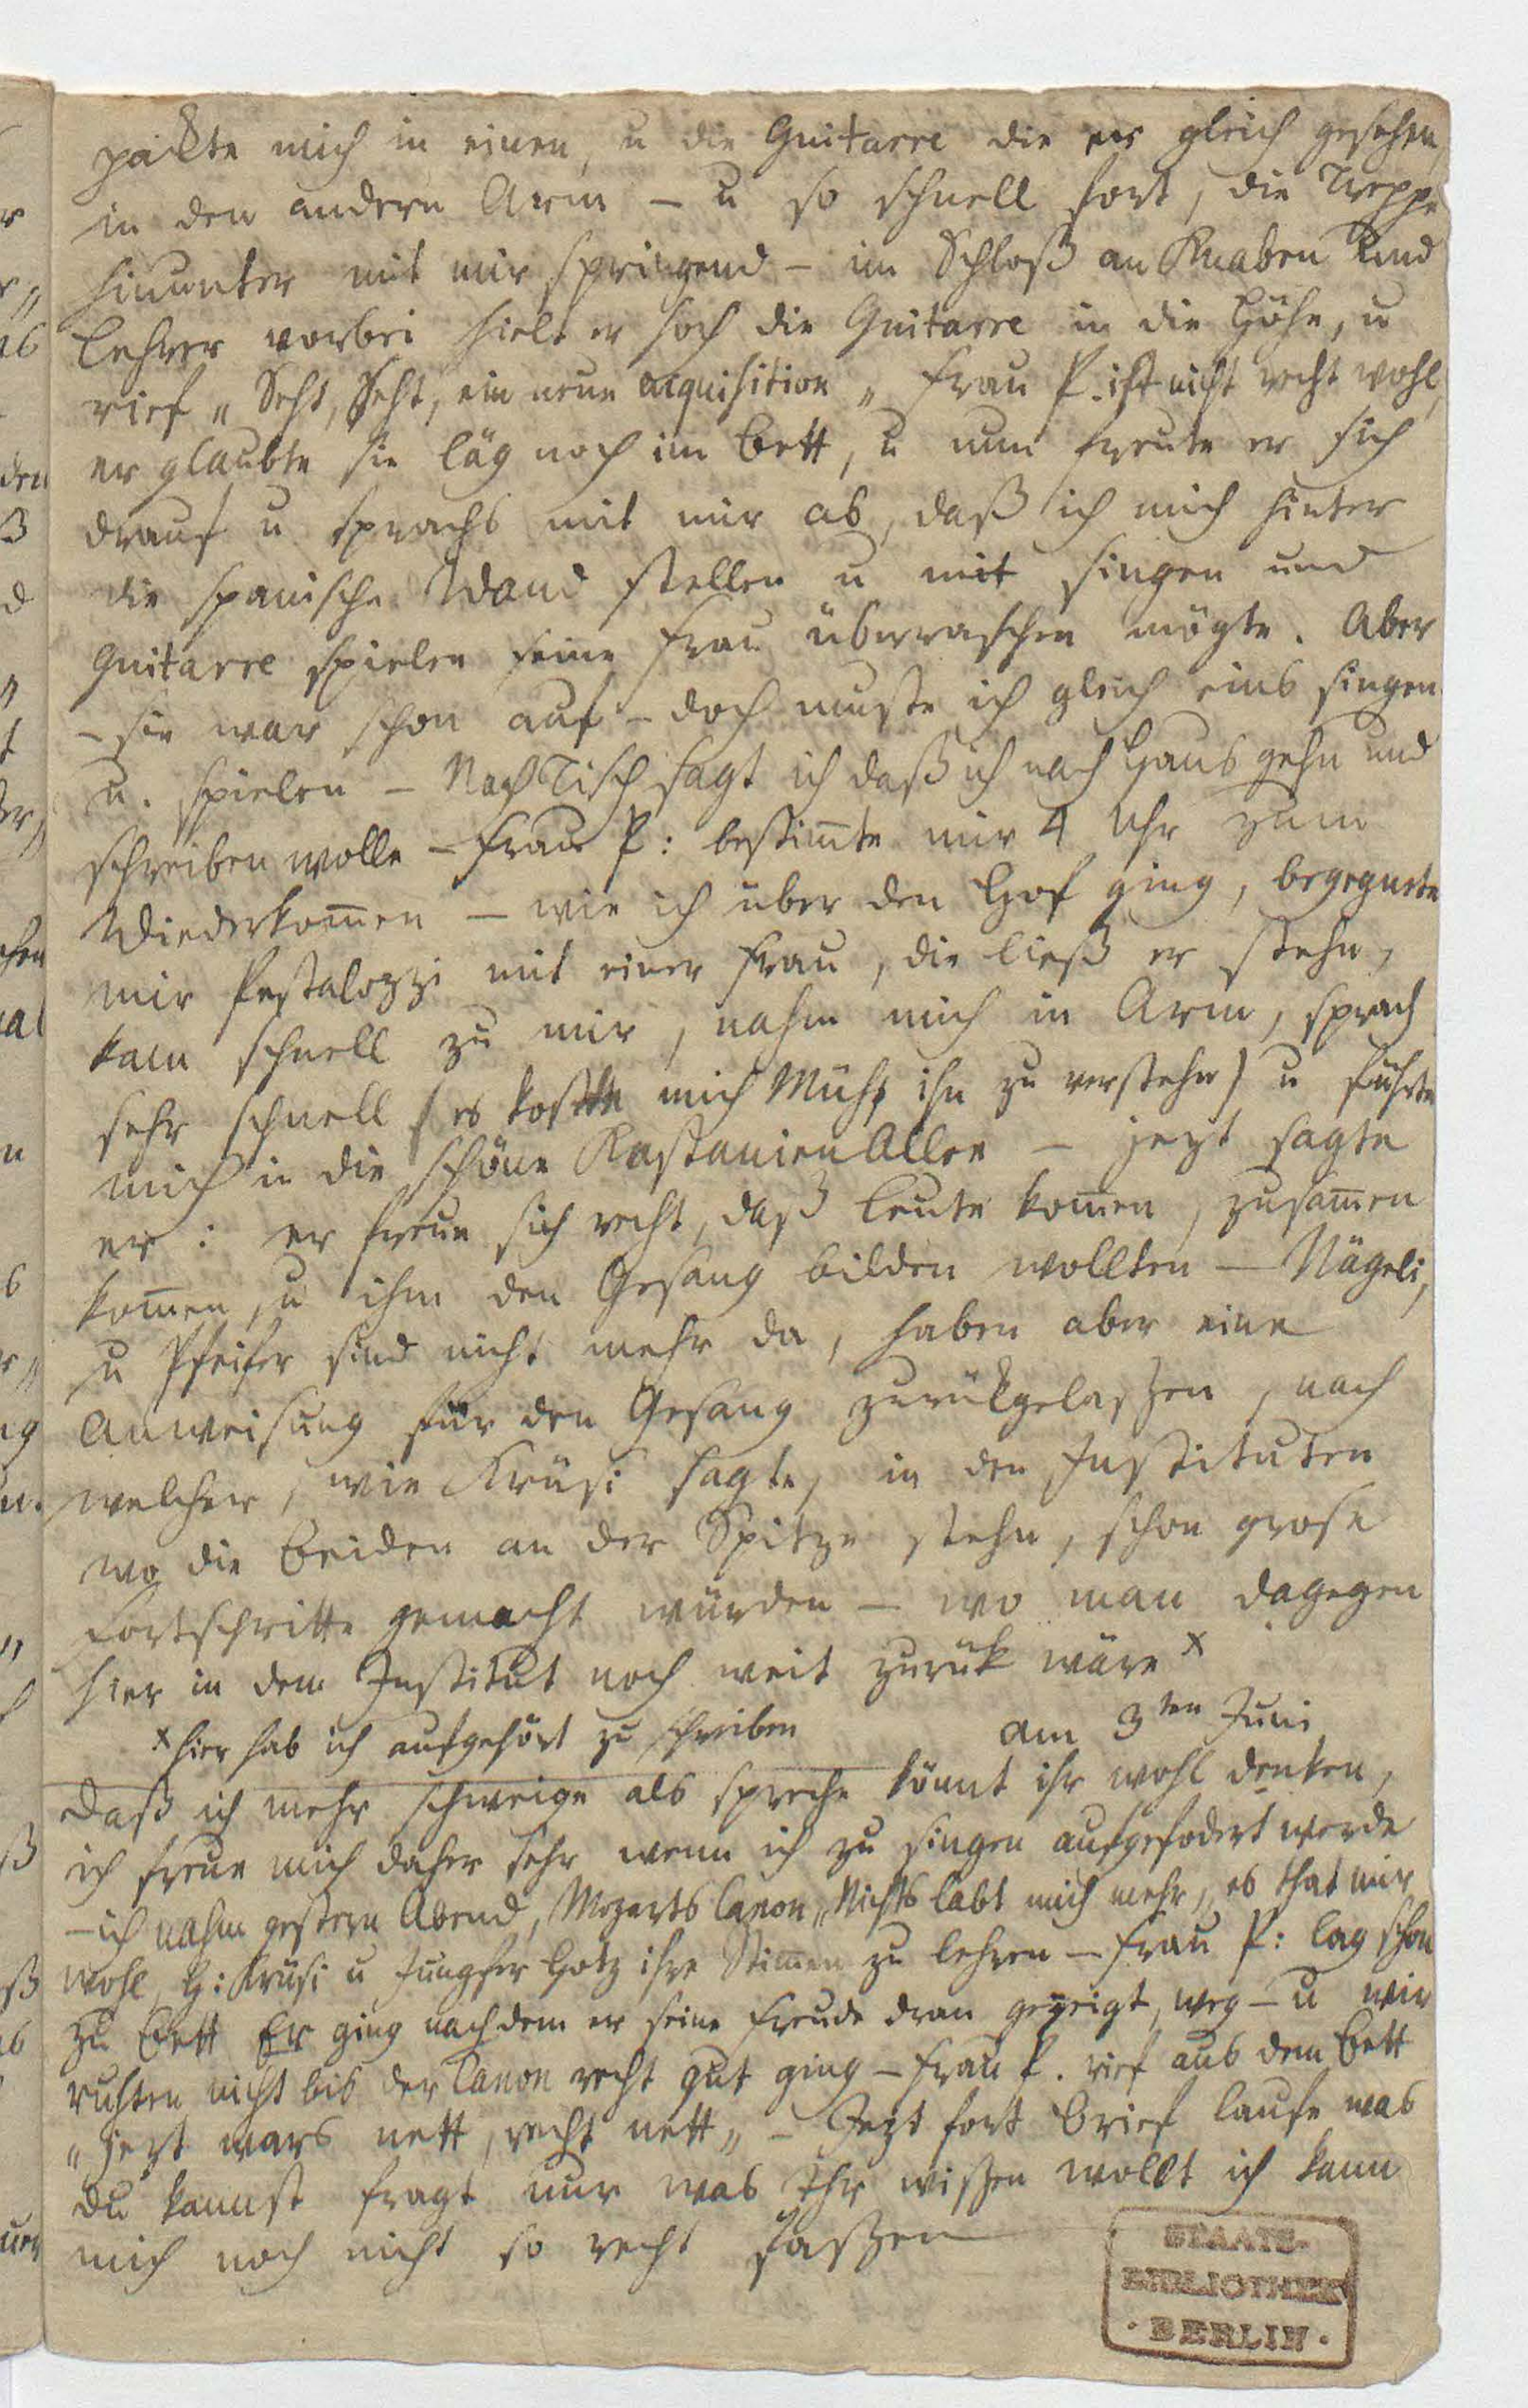 pakte mich in einen, u die Guitarre die er gleich gesehen,
in den andern Arm – u so schnell fort, die Treppe
hinunter mit mir springend – im Schloß an Knaben und
Lehrer vorbei hielt er hoch die Guitarre in die Höhe, u
rief „ Seht, Seht, ein neue acquisition „ Frau P. ist nicht recht wohl,
er glaubte sie läg noch im Bett, u nun freute er sich
drauf u sprachs mit mir ab, daß ich mich hinter
die spanische Wand stellen u mit singen und
Guitarre spielen seine Frau überraschen mögte. Aber
– sie war schon auf – doch muste ich gleich eins singen
u. spielen – Nach Tisch sagt ich daß ich nach Haus gehn und
schreiben wolle – Frau P: bestim̄te mir 4 Uhr zum
Wiederkom̄en – wie ich über den Hof ging, begegnete
mir Pestalozzi mit einer Frau, die ließ er stehn,
kam schnell zu mir, nahm mich in Arm, sprach
sehr schnell (es kostete mich Mühe ihn zu verstehn) u führte
mich in die schöne Kastanien Allee – jezt sagte
er: er freue sich recht, daß Leute kom̄en, zusam̄en
kom̄en, u ihm den Gesang bilden wollten – Nägeli,
u Pfeifer sind nicht mehr da, haben aber eine
Anweisung für den Gesang zurückgelaßen, nach
welcher, wie Krüsi sagte, in den Instituten
wo die beiden an der Spitze stehn, schon grose
Fortschritte gemacht würden – wo man dagegen
hier in dem Institut noch weit zurük wäre x
x hier hab ich aufgehört zu schreiben am 3ten Juni
Daß ich mehr schweige als spreche könnt ihr wohl denken,
ich freue mich daher sehr wenn ich zu singen aufgefodert werde
– ich nahm gestern Abend, Mozarts Canon „ Nichts labt mich mehr „ es that mir
wohl, H: Krüsi u Jungfer Hotz ihre Stim̄en zu lehren – Frau P: lag schon
zu Bett Er ging nachdem er seine Freude dran gezeigt, weg – u wir
ruhten nicht bis der Canon recht gut ging – Frau P. rief aus dem Bett
„ jezt wars nett, recht nett „ – Jezt fort Brief laufe was
du kannst fragt nur was Ihr wißen wollt ich kann
mich noch nicht so recht faßen
STAATS-
BIBLIOTHEK
· BERLIN ·